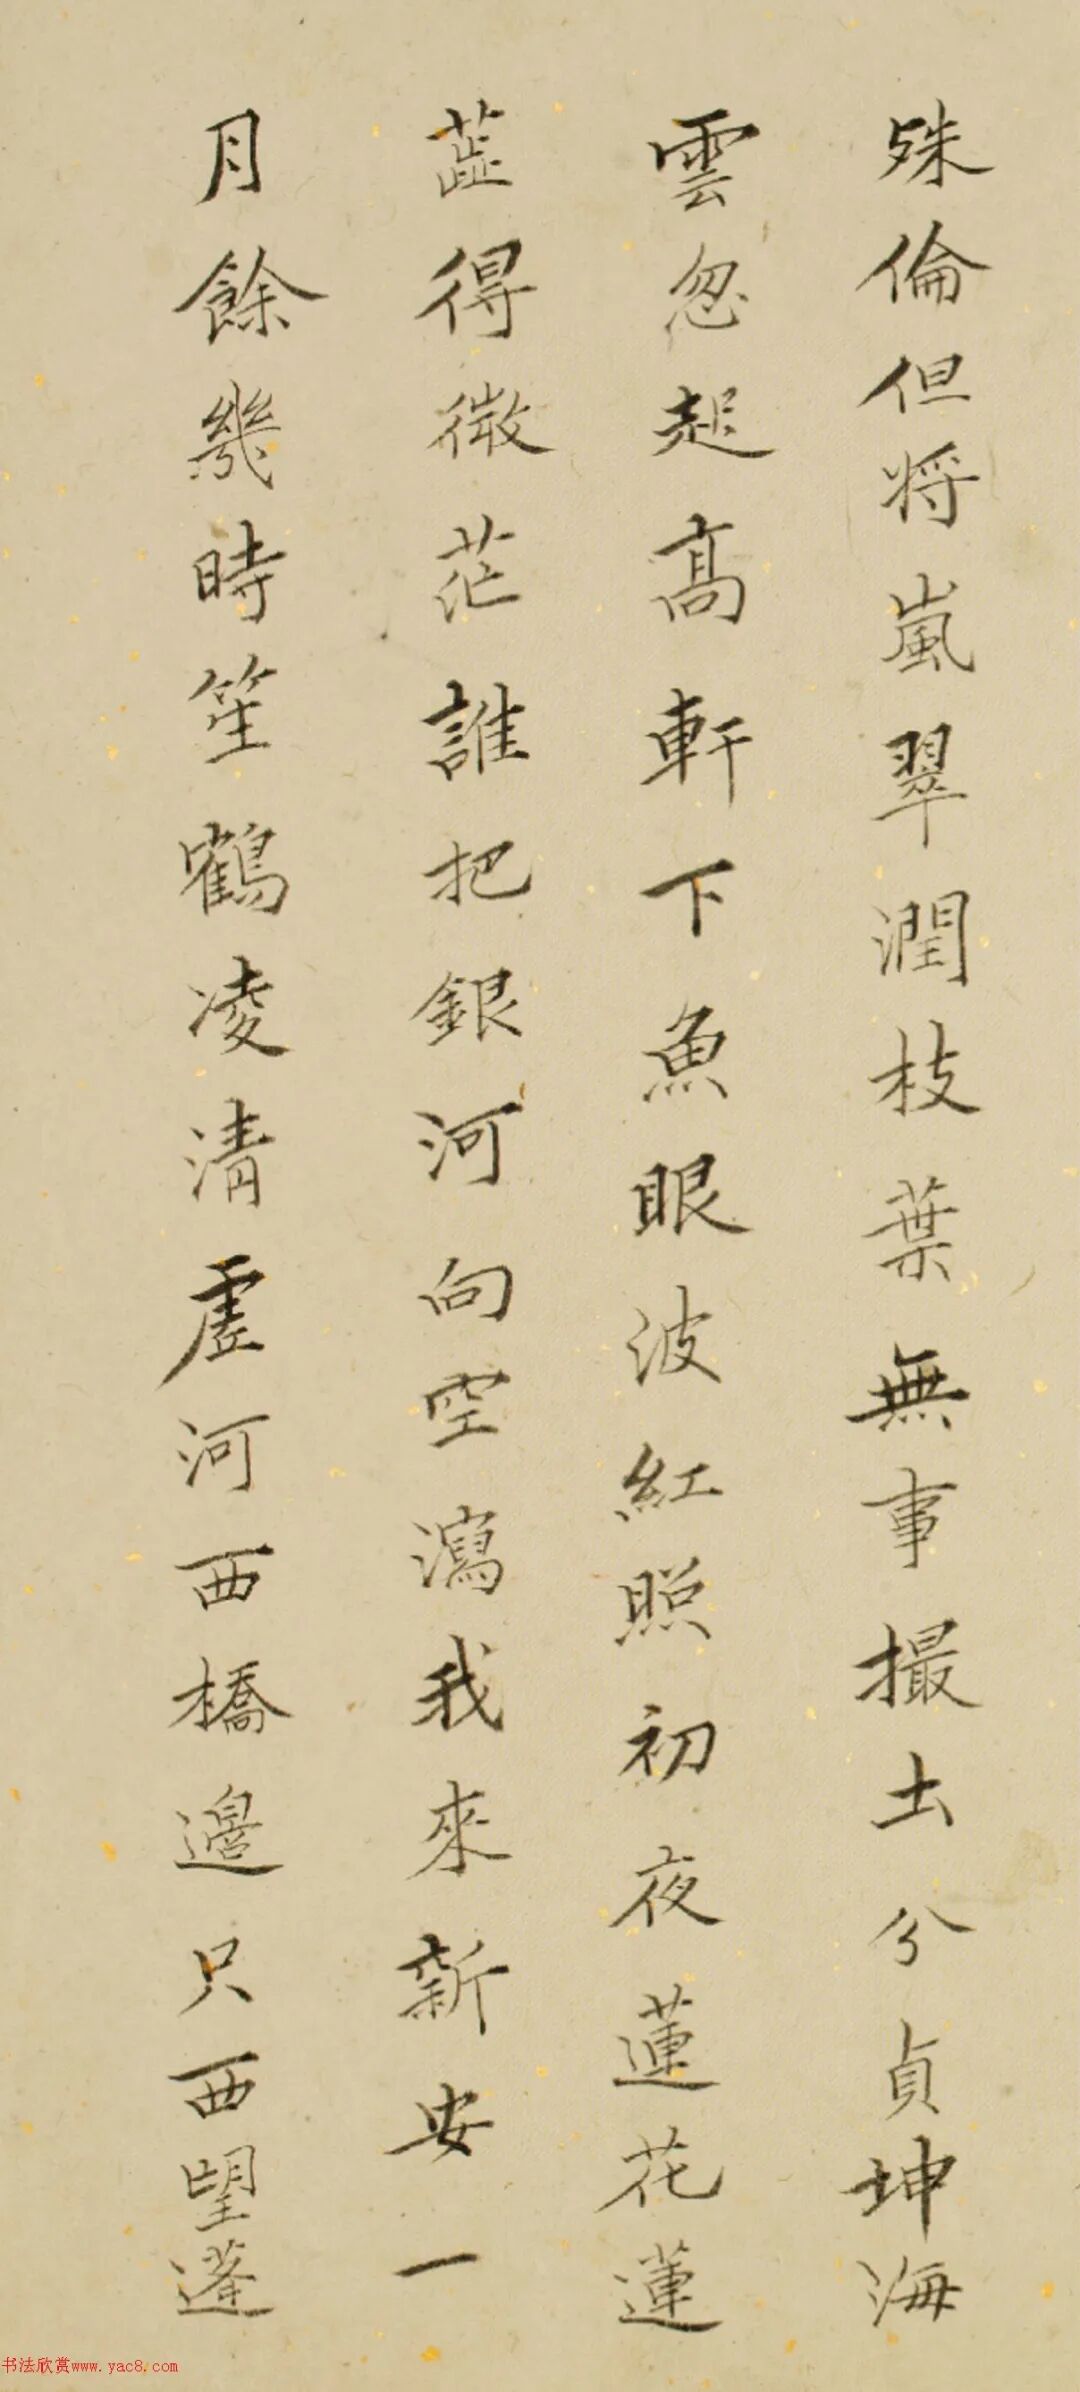 殊倫但将嵐翠潤枝葉無事撮土分貞坤海
雲忽起高軒下魚眼波紅照初夜蓮花蓮
蕋得微茫誰把銀河向空瀉我來新安一
月餘幾時笙鶴凌清虛河西橋邊只西望蓬
书法欣赏www.yac8.com